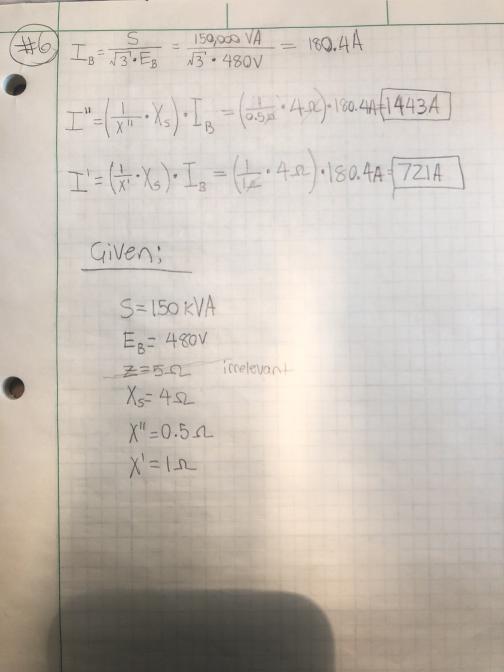 #6 I_B = S/(√3 · E_B) = 150,000 VA/(√3 · 480V) = 180.4A
I" = (1/X" · X_S) · I_B = (1/0.5Ω · 4Ω) · 180.4A = 1443A
I' = (1/X' · X_S) · I_B = (1/1Ω · 4Ω) · 180.4A = 721A
Given:
S = 150 kVA
E_B = 480V
Z = 5Ω irrelevant
X_S = 4Ω
X" = 0.5Ω
X' = 1Ω